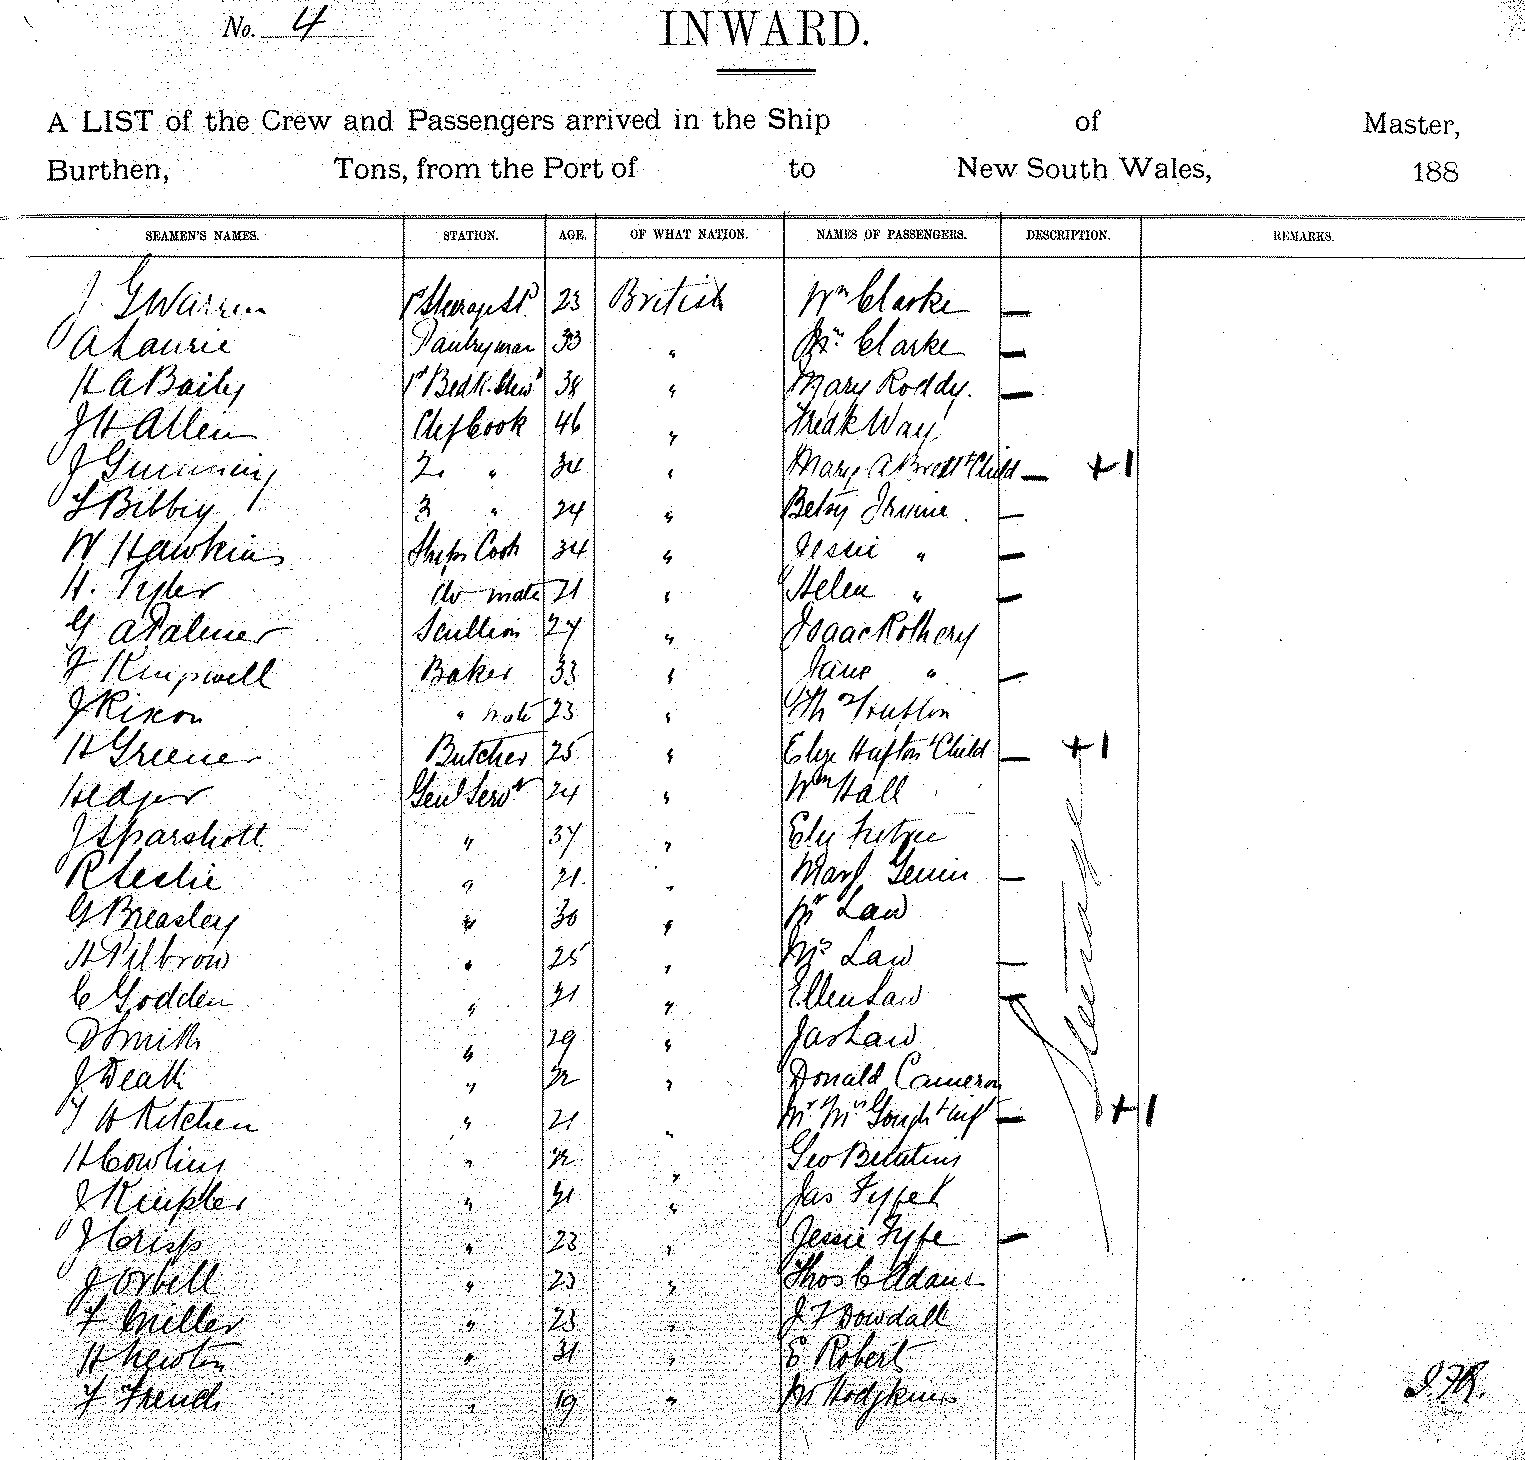 No. 4
INWARD.
A LIST of the Crew and Passengers arrived in the Ship of Master,
Burthen, Tons, from the Port of to New South Wales, 188
SEAMEN'S NAMES. STATION. AGE. OF WHAT NATION. NAMES OF PASSENGERS. DESCRIPTION. REMARKS.
J G Warren 23 British Wm Clarke —
A Laurie Pantryman 33 " Mrs Clarke —
H A Baily 38 " Mary Roddy. —
J H Allen Chef Cook 46 " Fredk Way
J Gunning 2 " 34 " Mary A Brett + Child — +1
Bibby 3 " 24 " Betsy Irvine —
W Hawkins Ships Cook 34 " Jessie " —
H. Tyler do mate 21 " Helen " —
G A Palmer Scullion 27 " Isaac Rothery
F Kingwell Baker 33 " Jane " —
J Rixon " mate 23 "
H Greener Butcher 25 " Eliza Hufton + Child — +1
Hedger Genl Servt 24 " Wm Hall
J Sparshott " 37 "
R Leslie " 21 " —
G Breasley " 30 " Mr Law
H Pilbrow " 25 " Mrs Law —
C Godden " 31 " Ellen Law —
D Smith " 29 " Jas Law
J Death " " Donald Cameron
T W Kitchen " 21 " Mr Mrs Gough + inf — +1
H Cowlins " " Geo
J Kimpler " 31 " Jas Fyfe
J Crisp " 23 " Jessie Fyfe —
J Orbell " 23 " Thos C Adams
F Miller " 23 " J T Dowdall
H Newton " 31 " E Robert
F French " 19 " Mr Hodgkins
Steerage